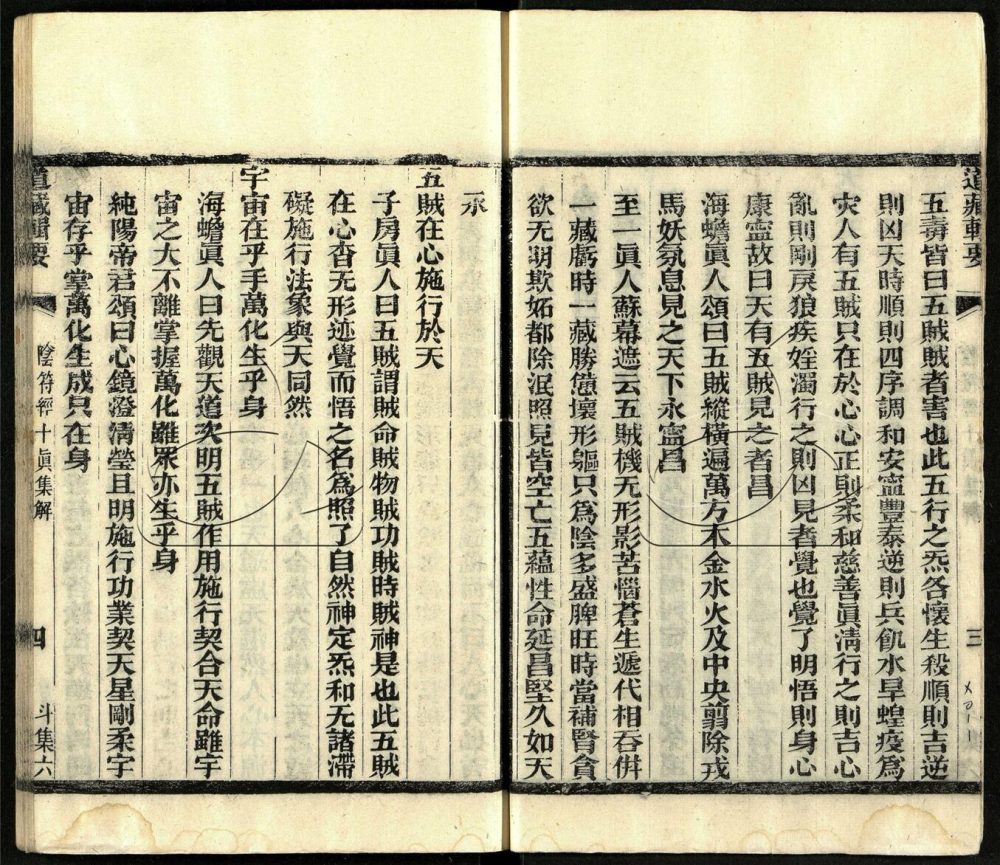 道藏輯要
三
五毒皆曰五賊賊者害也此五行之炁各懷生殺順則吉逆
則凶天時順則四序調和安寍豐泰逆則兵飢水旱蝗疫爲
灾人有五賊只在於心心正則柔和慈善眞淸行之則吉心
亂則剛戾狼疾婬濁行之則凶見者覺也覺了明悟則身心
康靈故曰天有五賊見之者昌
海蟾眞人頌曰五賊縱橫遍萬方木金水火及中央翦除戎
馬妖氛息見之天下永寍昌
至一眞人蘇幕遮云五賊機无形影苦惱蒼生遞代相吞倂
一藏虧時一藏勝憊壞形軀只爲陰多盛脾旺時當補腎貪
欲无明欺妬都除泯照見皆空亡五蘊性命延昌堅久如天
永
五賊在心施行於天
子房眞人曰五賊謂賊命賊物賊功賊時賊神是也此五賊
在心杳无形迹覺而悟之名爲照了自然神定炁和无諸滯
礙施行法象與天同然
宇宙在乎手萬化生乎身
海蟾眞人曰先觀天道次明五賊作用施行契合天命雖宇
宙之大不離掌握萬化雖眾亦生乎身
純陽帝君頌曰心鏡澄淸瑩且明施行功業契天星剛柔宇
宙存乎掌萬化生成只在身
道藏輯要
陰符經十眞集解
四
斗集六